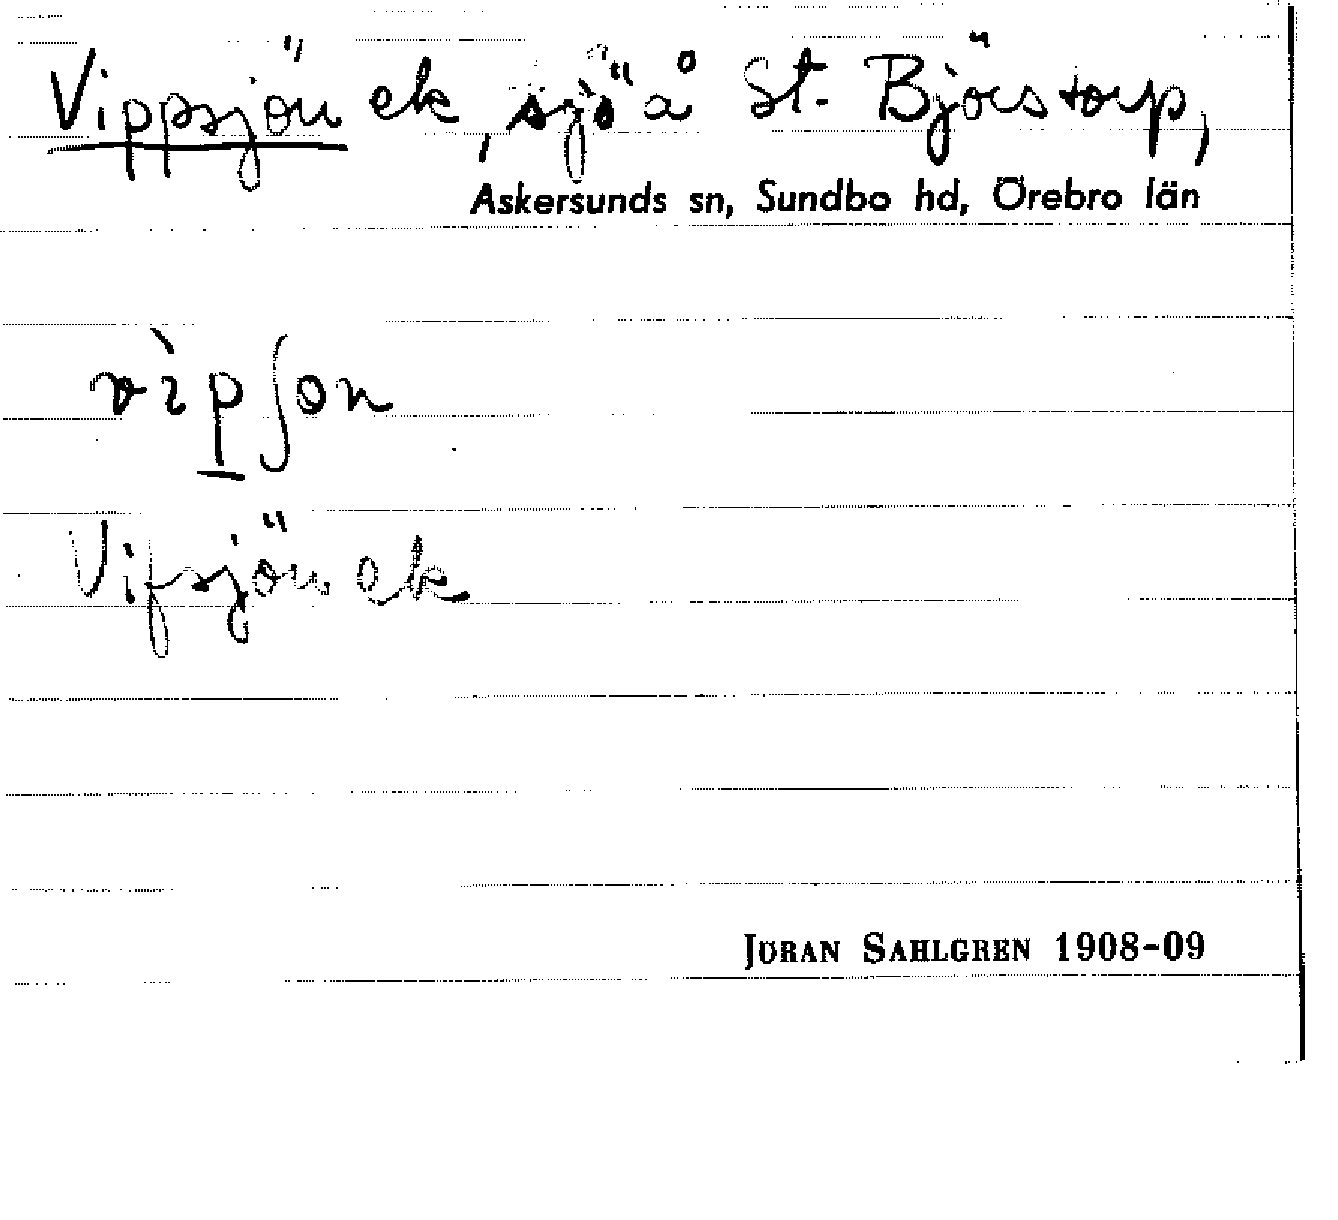 Vippsjön ek, sjö å St. Björstorp,
Askersunds sn, Sundbo hd, Örebro län
vìp̲ʃon
Vifsjön ek
JÖRAN SAHLGREN 1908-09